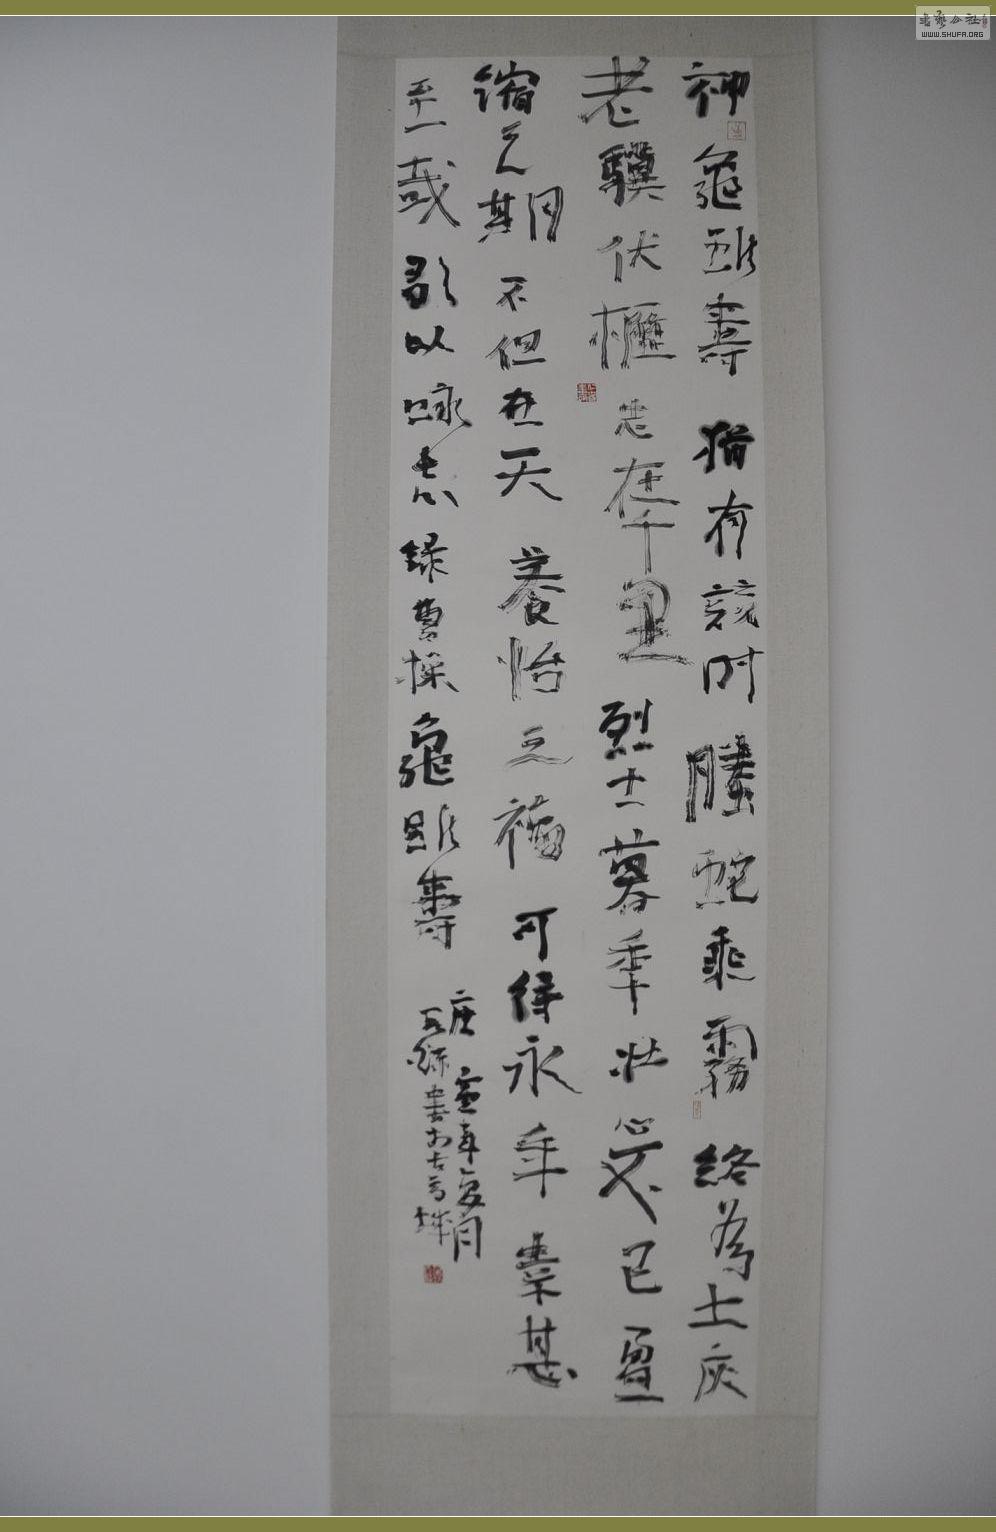 神龜雖壽猶有競時螣蛇乘霧終為土灰
老驥伏櫪志在千里烈士暮年壯心不已盈
縮之期不但在天養怡之福可得永年幸甚
至哉歌以詠志錄曹操龜雖壽
庚寅年夏月
書於古城
WWW.SHUFA.ORG